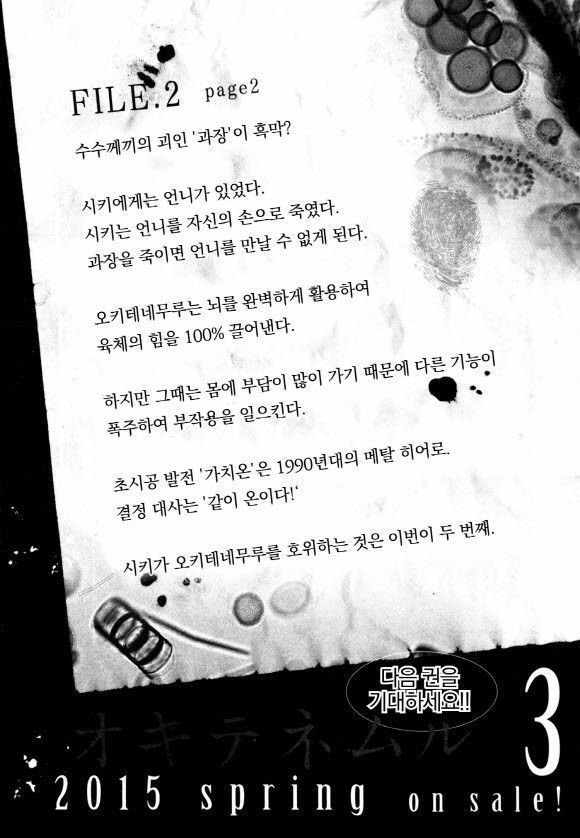 FILE.2 page2
수수께끼의 괴인 '과장'이 흑막?
시키에게는 언니가 있었다.
시키는 언니를 자신의 손으로 죽였다.
과장을 죽이면 언니를 만날 수 없게 된다.
오키테네무루는 뇌를 완벽하게 활용하여
육체의 힘을 100% 끌어낸다.
하지만 그때는 몸에 부담이 많이 가기 때문에 다른 기능이
폭주하여 부작용을 일으킨다.
초시공 발전 '가치온'은 1990년대의 메탈 히어로.
결정 대사는 '같이 온이다!'
시키가 오키테네무루를 호위하는 것은 이번이 두 번째.
다음 권을
기대하세요!!
オキテネムル
3
2015 spring on sale!